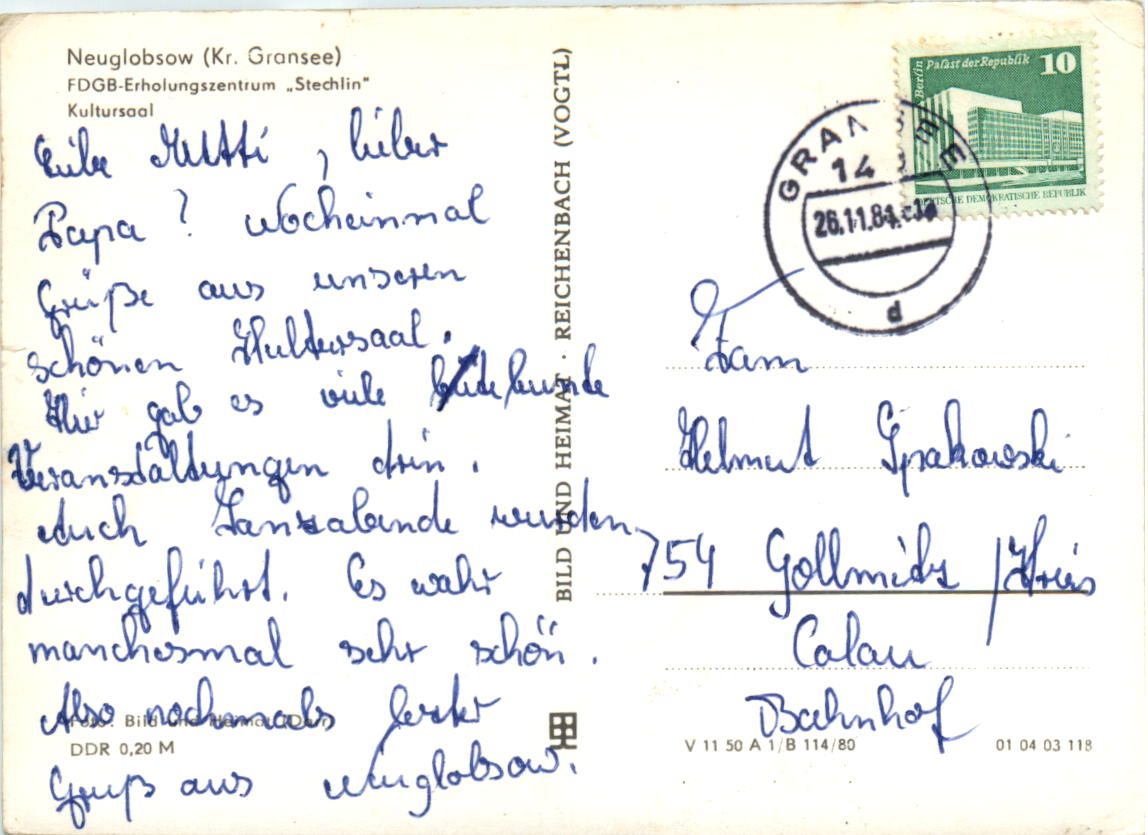 Neuglobsow (Kr. Gransee)
FDGB-Erholungszentrum „Stechlin"
Kultursaal
Liebe Mutti, lieber
Papa! Nocheinmal
Grüße aus unseren
schönen Kultursaal.
Hier gab es viele
Veranstaltungen drin.
Auch Tanzabende wurden
durchgeführt. Es wahr
manchesmal sehr schön.
Also nochmals
Gruß aus Neuglobsow.
Foto: Bild und Heimat (Darr)
DDR 0,20 M
BILD UND HEIMAT · REICHENBACH (VOGTL)
Berlin
Palast der Republik
10
DEUTSCHE DEMOKRATISCHE REPUBLIK
GRANSEE
14
26.11.84
d
Fam
Helmut Sprakowski
754 Gollmitz / Kreis
Calau
Bahnhof
V 11 50 A 1/B 114/80
01 04 03 118